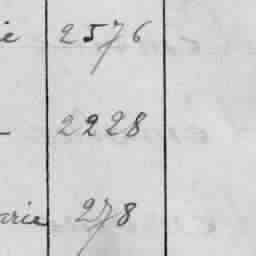 ie 2576
2228
arie 278